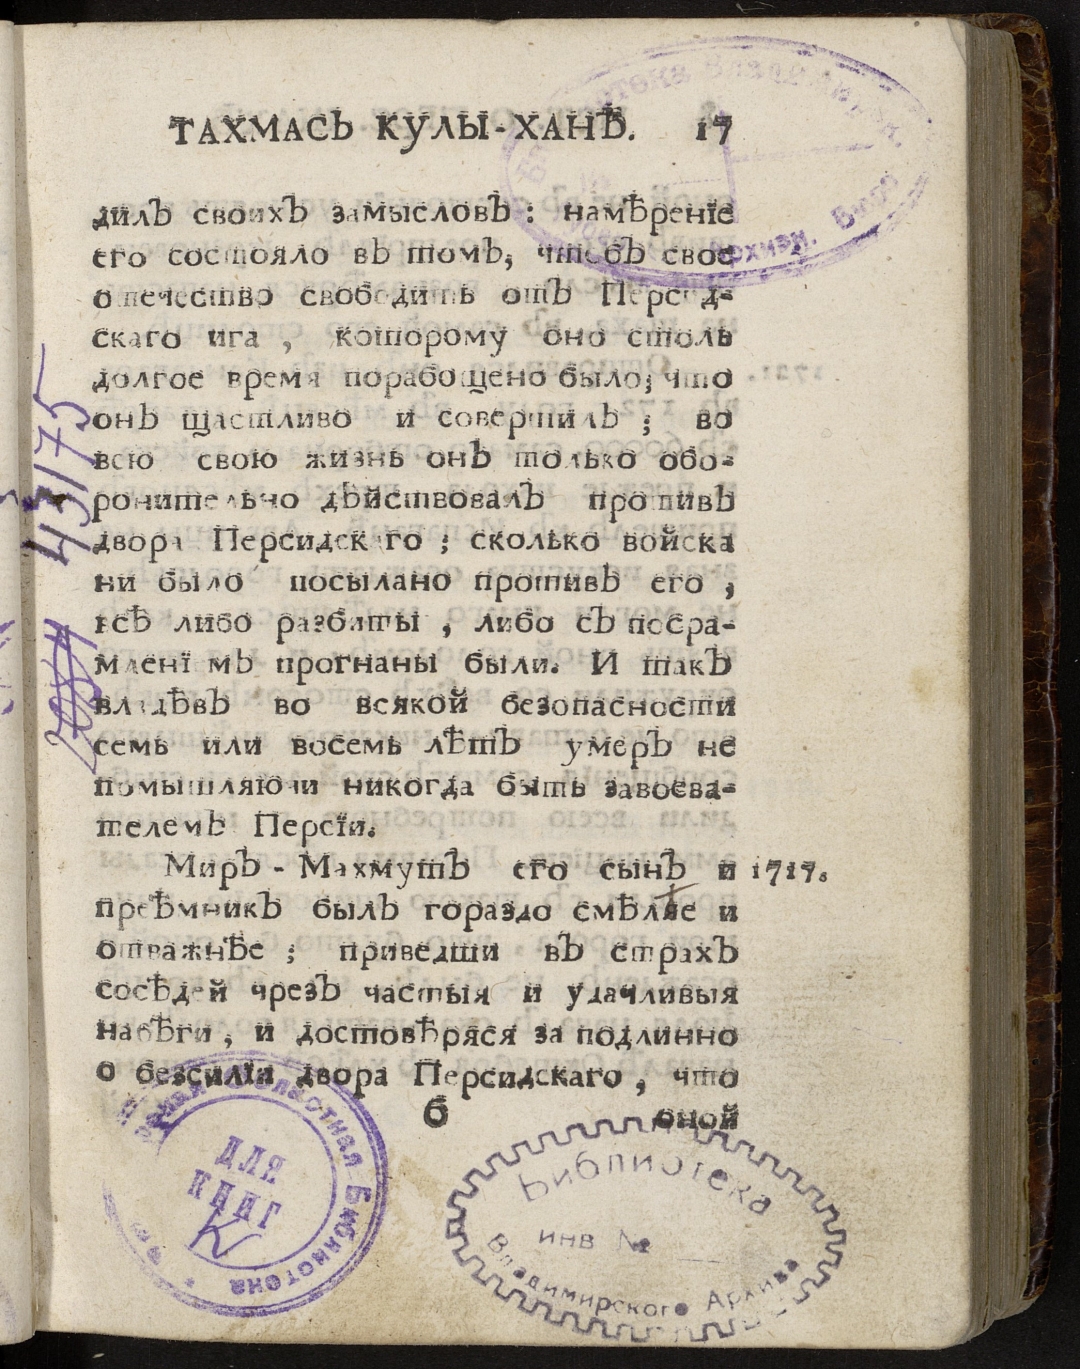 ТАХМАСЬ КУЛЫ-ХАНѢ. 17
дилЪ своихЪ замысловЪ: намѣренїе
его состояло вЪ томЪ, чтобЪ свое
отечество свободить отЪ Персид-
скаго ига, которому оно столь
долгое время порабощено было; что
онЪ щастливо и совершилЪ; во
всю свою жизнь онЪ только обо-
ронительно дѣйствовалЪ противЪ
двора Персидскаго; сколько войска
ни было посылано противЪ его,
всѣ либо разбиты, либо сЪ посра-
мленїемЪ прогнаны были. И такЪ
владѣвЪ во всякой безопасности
семь или восемь лѣтЪ умерЪ не
помышляючи никогда быть завоева-
телемЪ Персїи.
МирЪ-МахмутЪ его сынЪ и 1717.
преѣмникЪ былЪ гораздо смѣляе и
отважнѣе; приведши вЪ страхЪ
сосѣдей чрезЪ частыя и удачливыя
набѣги, и достовѣряся за подлинно
о безсилїи двора Персидскаго, что
б оной
43175
ная Областная Библиотека
ДЛЯ
КНИГ
Библиотека
инв №
Владимирского Архива